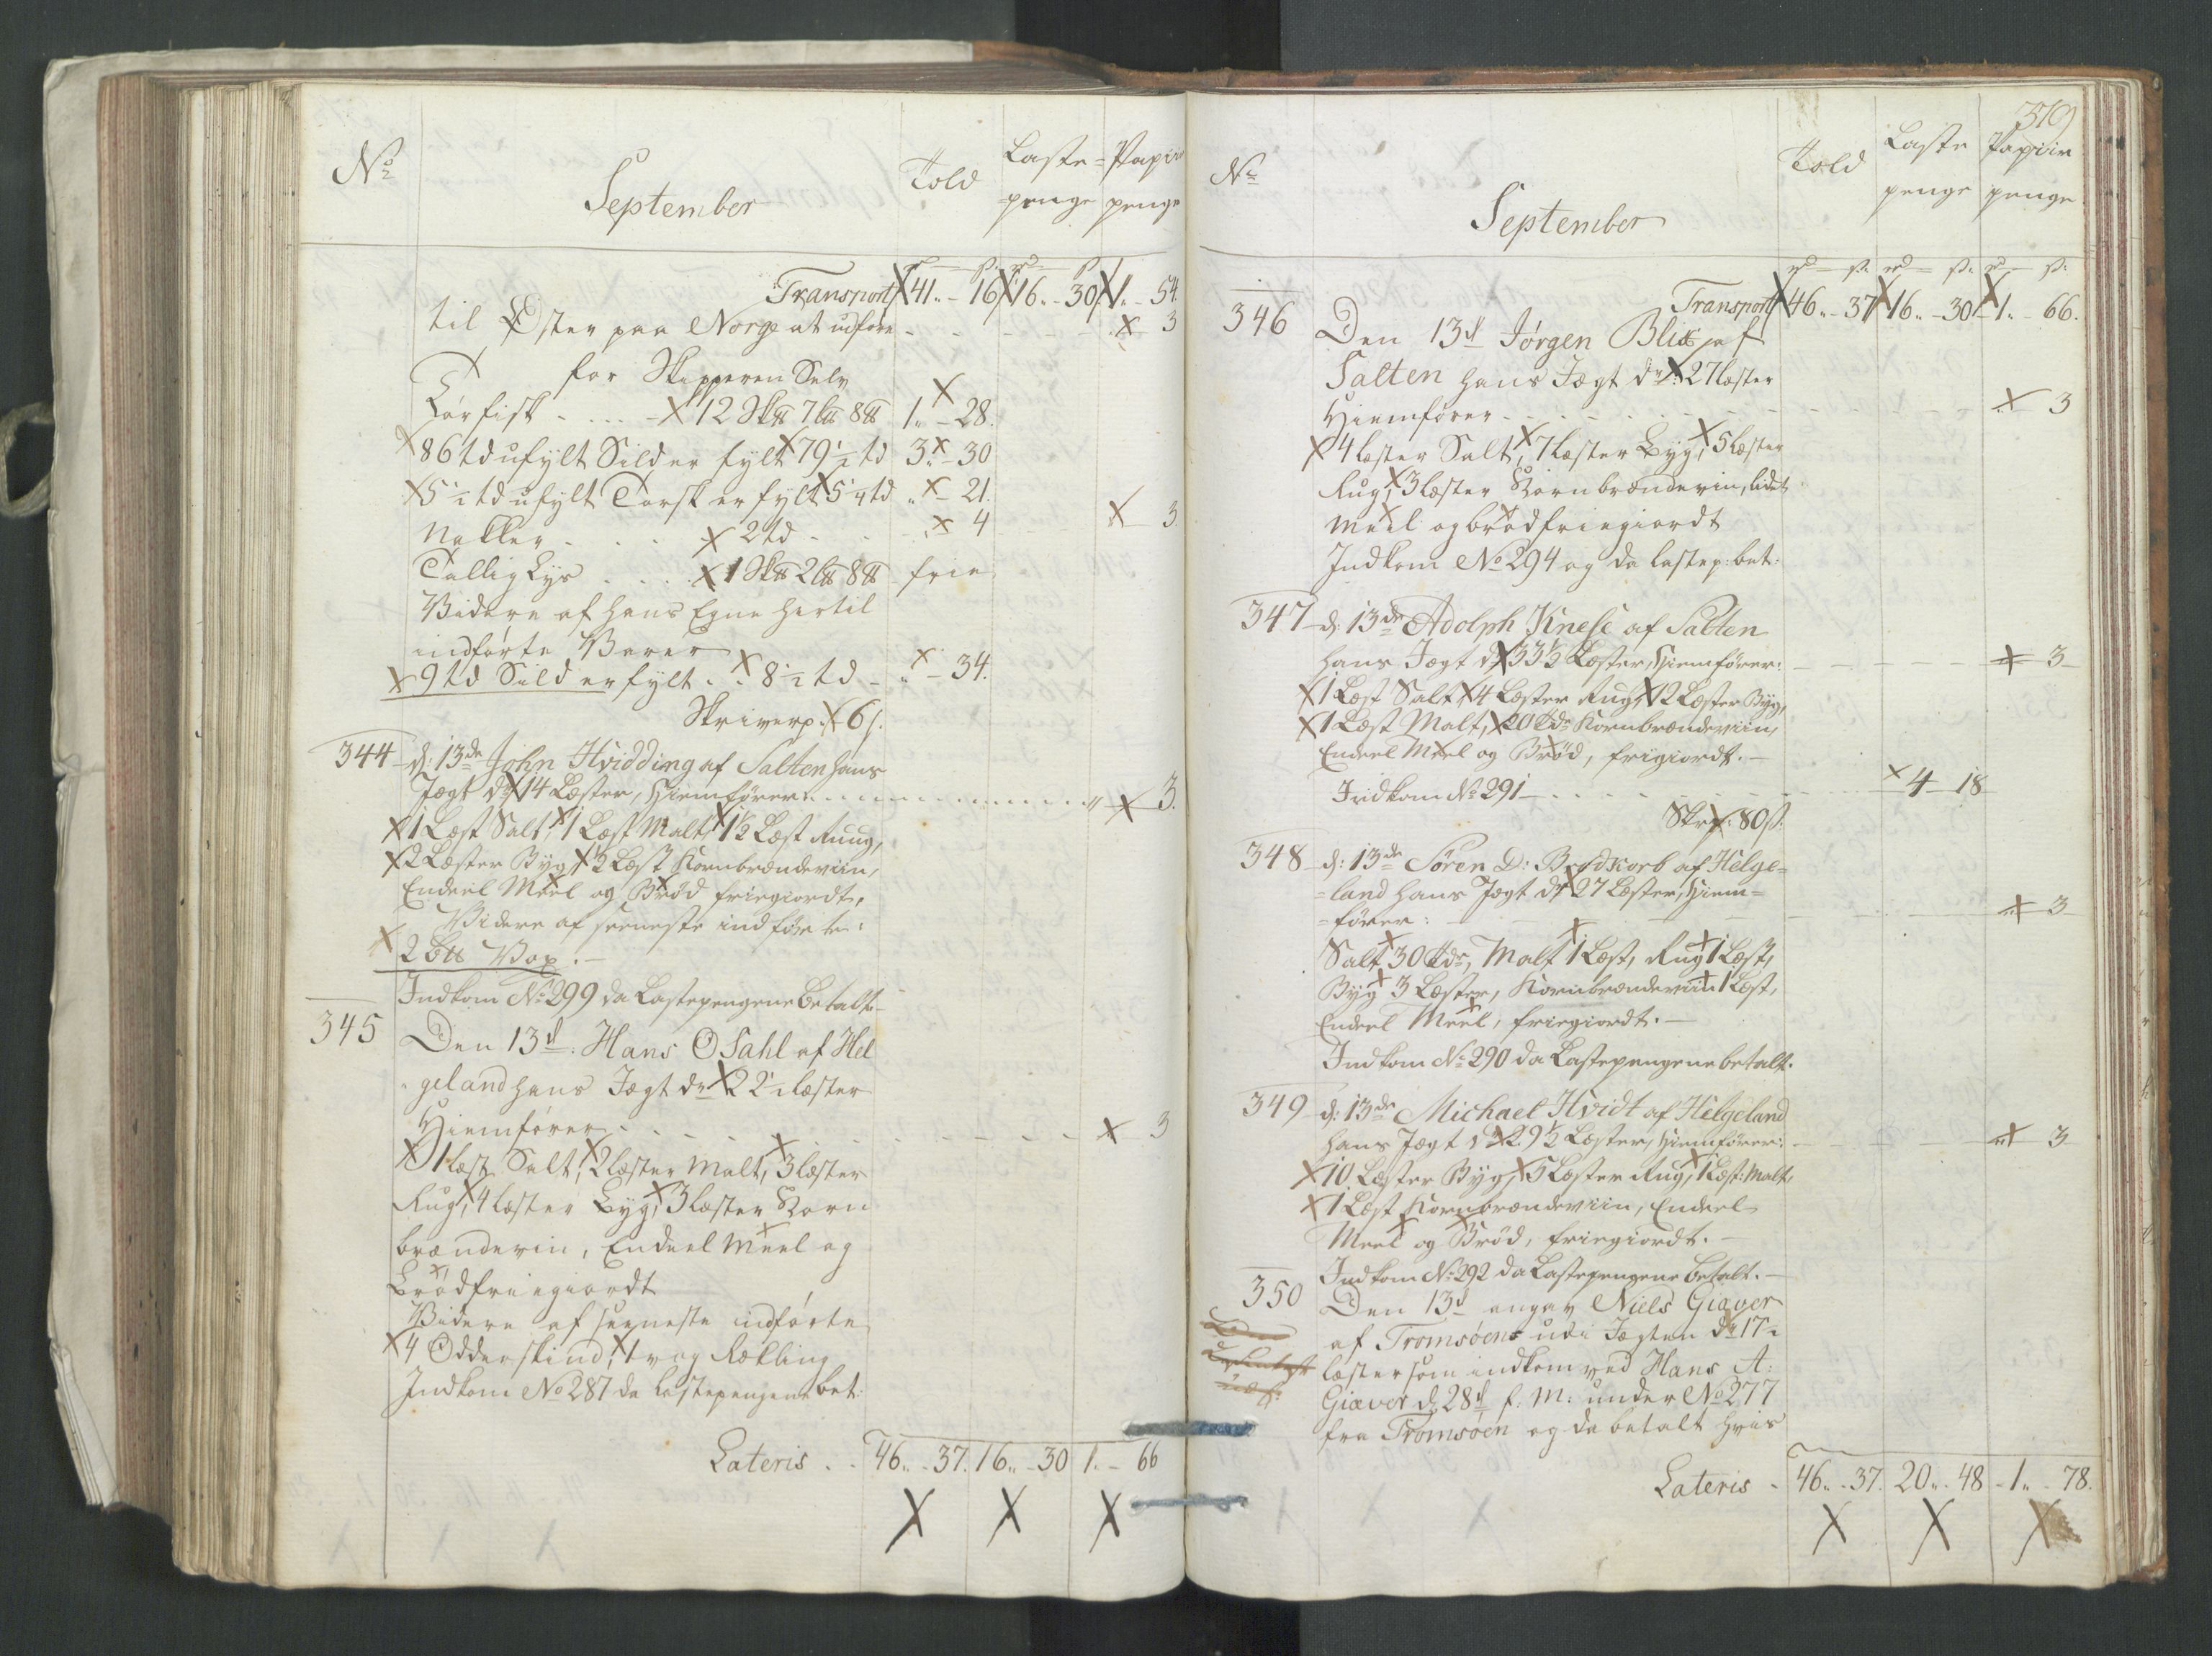 No
September
Told
Laste=
penge
Papiir
penge
Transport 41.. - 16 16.. - 30 1.. - 54.
til Østen paa Norge at udføre - 3
for Skipperen Selv
Tørfisk - 12 Sk℔ 7 L℔ 8 ℔ 1.. - 28.
86 td ufylt Sild er fylt 79½ td 3.. - 30
5½ td ufylt Torsk er fylt 5¼ td .. - 21. 3.
Nakker - 2 td .. - 4
Tallig Lys 1 Sk℔ 2 L℔ 8 ℔ frie
Videre af hans Egne hertil
indførte Varer
9 td Sild er fylt 8½ td .. - 34.
Skriverp. 6 s.
344 d: 13de John Hvidding af Salten hans
Jægt dr. 14 Læster, Hiemfører 3.
1 Læst Salt, 1 Læst Malt, 1½ Læst Rug,
2 Læster Byg, ½ Læst Kornbrændeviin,
Endeel Meel og Brød friegiordt.
Videre af seeneste indførte:
2 L℔ Vox.
Indkom No 299 da Lastepengene betalt.
345 Den 13d: Hans O Sahl af Hel
geland hans Jægt dr 22½ læster
Hiemfører 3
1 læst Salt, 2 læster Malt, 3 læster
Rug, 4 læster Byg, 3 læster Korn
brændevin, Endeel Meel og
Brød friegiordt
Videre af seeneste indførte
4 Odderskind, 1 vog Rækling
Indkom No 287 da lastepengene bet:
Lateris 46.. - 37. 16.. - 30 1. - 66
319
No
September
Told
Laste
penge
Papiir
penge
Transport 46.. - 37 16.. - 30 1.. - 66.
346 Den 13d Jørgen Blix af
Salten hans Jægt dr. 27 læster
Hiemfører 3
4 læster Salt, 7 læster Byg, 5 læster
Rug, 3 læster Korn brændevin, lidet
Meel og brød friegiordt
Indkom No 294 og da lastep: bet:
347 d: 13de Adolph Knese af Salten
hans Jægt dr 33½ Læster, Hiemfører: 3
1 Læst Salt, 4 Læster Rug, 12 Læster Byg,
1 Læst Malt, 20 Tdr Kornbrændeviin,
Endeel Meel og Brød, frigiordt.
Indkom No 291 4 - 18
Skrp: 80 s:
348 d: 13de Søren D: Brodkorb af Helge=
=land hans Jægt dr 27 Læster, Hiem=
=fører: 3
Salt 30 Tdr, Malt 1 Læst, Rug 1 Læst,
Byg 3 Læster, Kornbrændeviin 1 Læst,
Endeel Meel, friegiordt.
Indkom No 290 da Lastepengene betalt.
349 d: 13de Michael Hvidt af Helgeland
hans Jægt dr 29½ Læster, Hiemfører: 3
10 Læster Byg, 5 Læster Rug, 1 Læst: Malt,
1 Læst Kornbrændeviin, Endeel
Meel og Brød, friegiordt.
Indkom No 292 da Lastepengene betalt.
350 Den 13d angav Niels Giæver
af Tromsøens udi Jægten dr 17½
læster som indkom ved Hans A:
Giæver d. 28d f: M: under No 277
fra Tromsøen og da betalt hvis
Lateris 46.. - 37. 20.. - 48 1.. - 78.